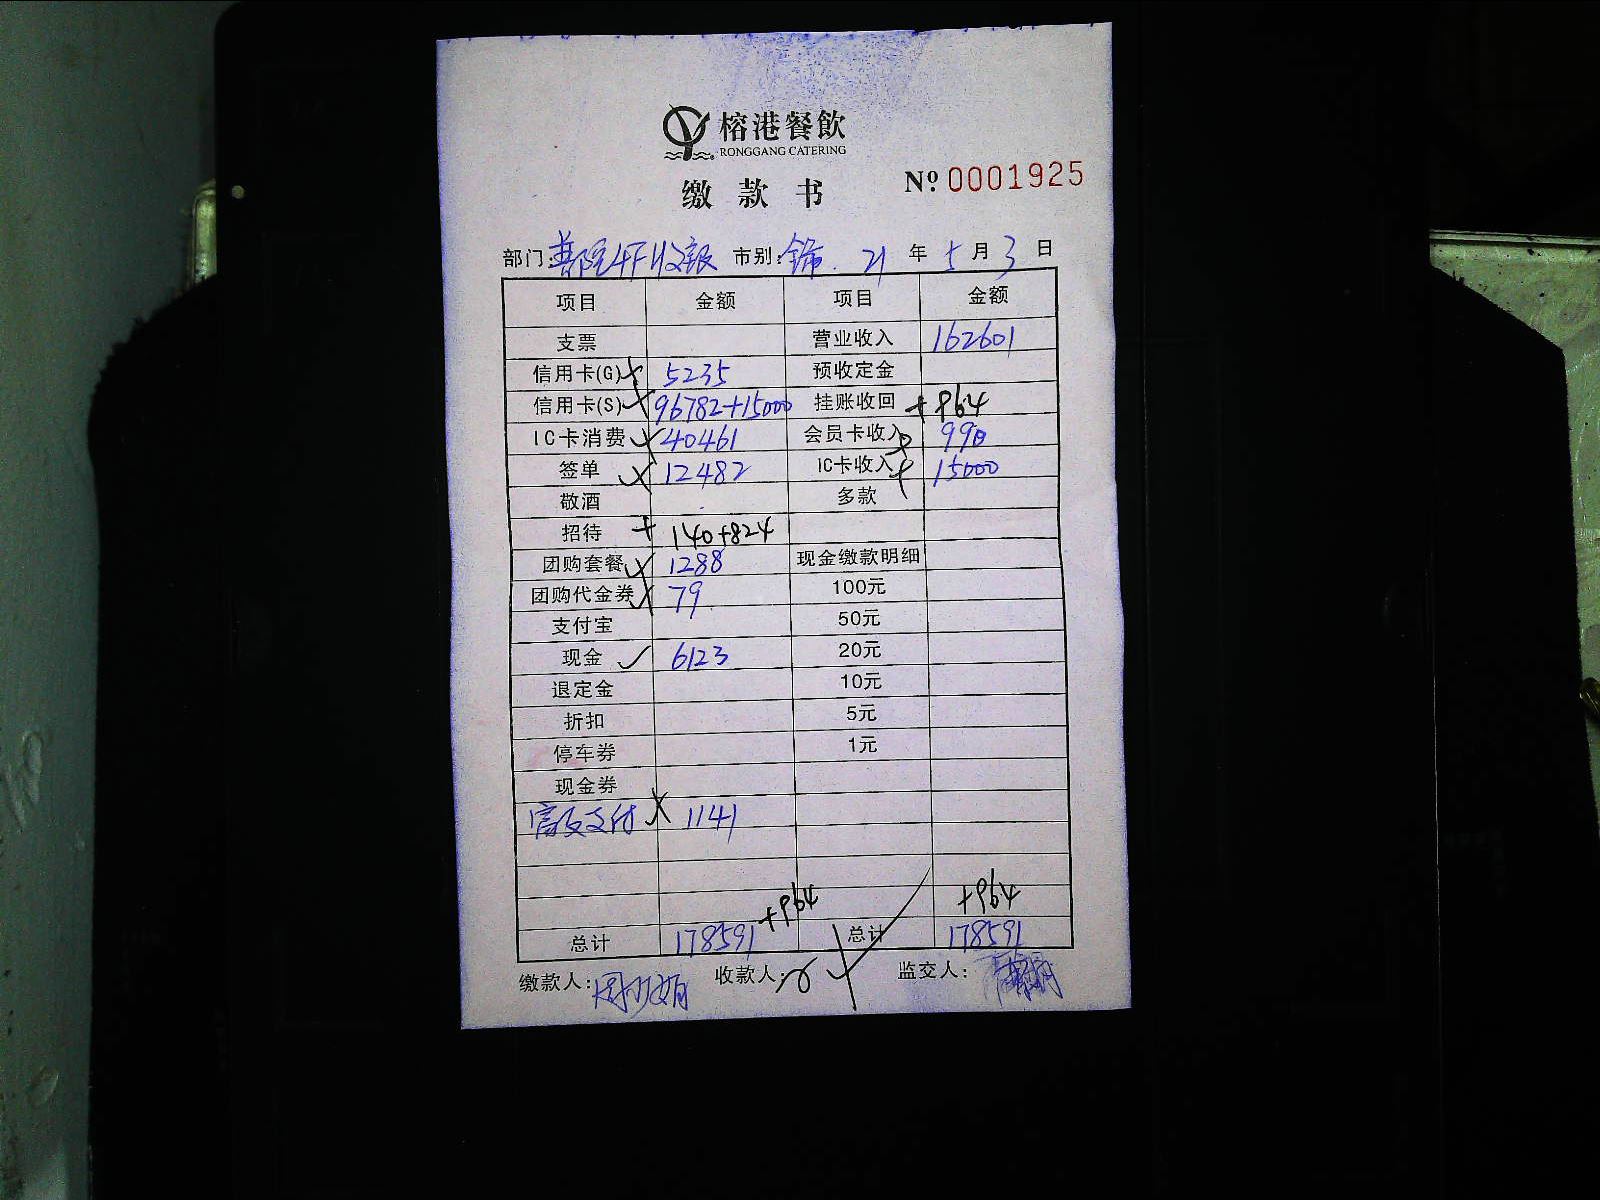 榕港餐飲
RONGGANG CATERING
缴款书 Nº 0001925
部门: 4F收银 市别: 21年5月3日
项目 金额 项目 金额
支票 营业收入 162601
信用卡(G) 5235 预收定金
信用卡(S) 96782+15000 挂账收回 +964
IC卡消费 40461 会员卡收入
签单 12482 IC卡收入 15000
敬酒 多款
招待 + 140+824
团购套餐 1288 现金缴款明细
团购代金券 79 100元
支付宝 50元
现金 ✓ 6123 20元
退定金 10元
折扣 5元
停车券 1元
现金券
支付 1141
+964 +964
总计 178591 总计 178591
缴款人: 收款人: 监交人: